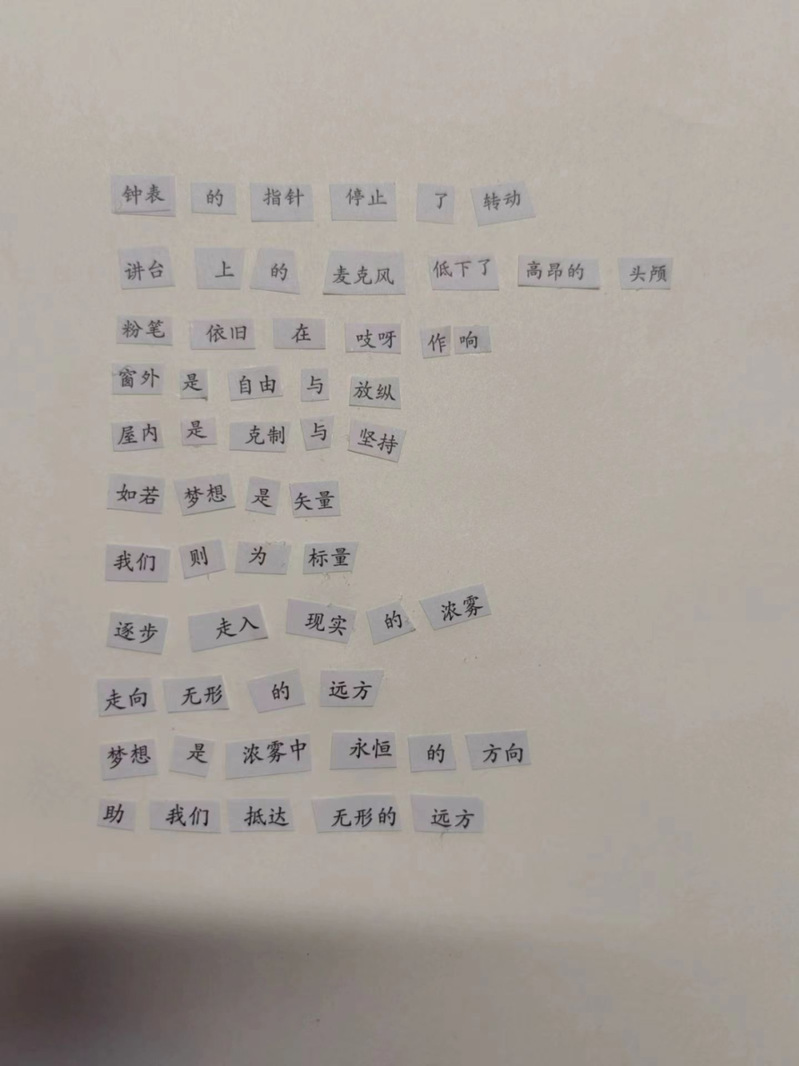 钟表的指针停止了转动
讲台上的麦克风低下了高昂的头颅
粉笔依旧在吱呀作响
窗外是自由与放纵
屋内是克制与坚持
如若梦想是矢量
我们则为标量
逐步走入现实的浓雾
走向无形的远方
梦想是浓雾中永恒的方向
助我们抵达无形的远方